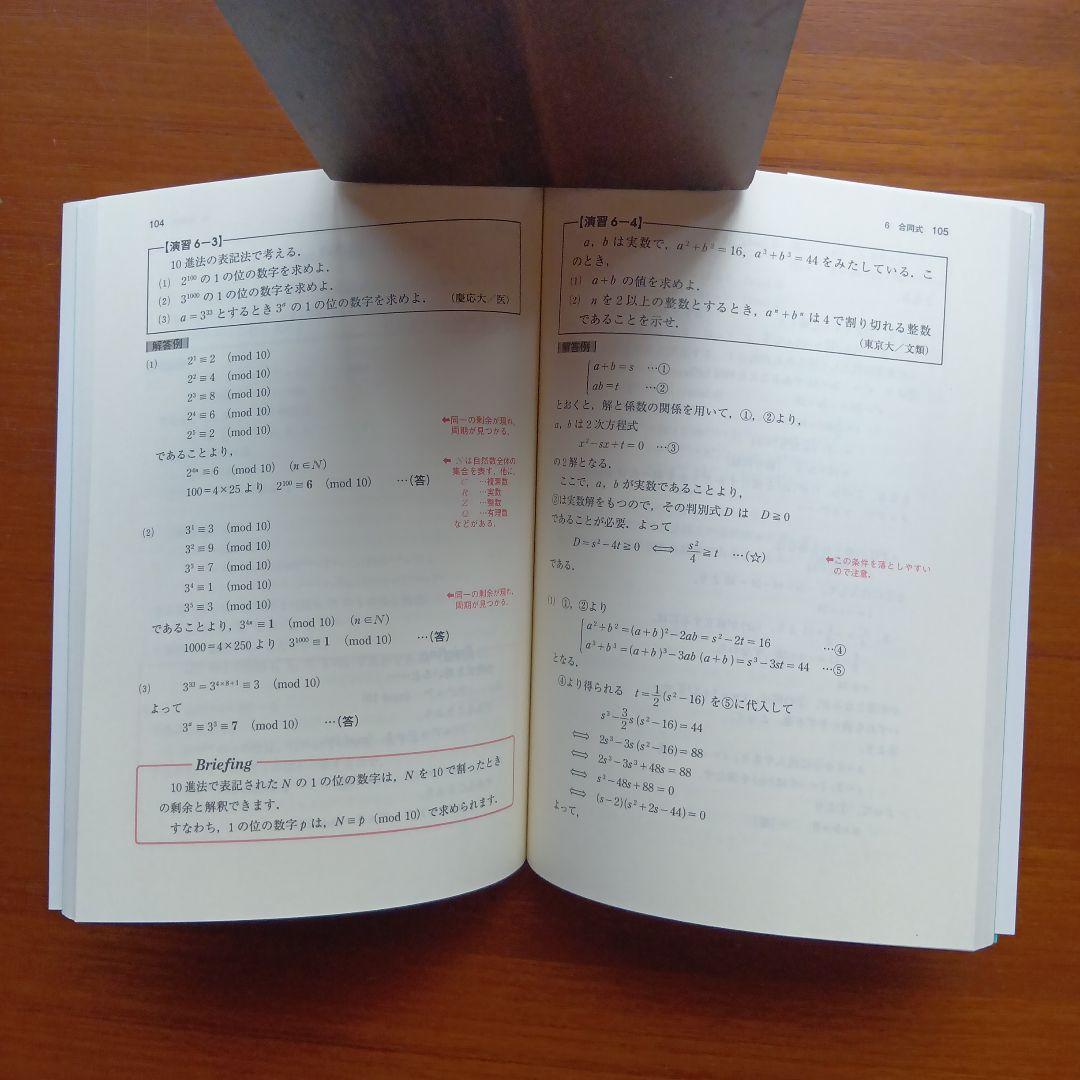 104
【演習 6−3】
10進法の表記法で考える.
(1) 2¹⁰⁰ の1の位の数字を求めよ.
(2) 3¹⁰⁰⁰ の1の位の数字を求めよ.
(3) a=3³³ とするとき 3ᵃ の1の位の数字を求めよ. (慶応大/医)
解答例
(1) 2¹≡2 (mod 10)
2²≡4 (mod 10)
2³≡8 (mod 10)
2⁴≡6 (mod 10)
2⁵≡2 (mod 10)
←同一の剰余が現れ,
周期が見つかる.
であることより,
2⁴ⁿ≡6 (mod 10) (n∈N)
100=4×25 より 2¹⁰⁰≡6 (mod 10) …(答)
← N は自然数全体の
集合を表す. 他に,
C …複素数
R …実数
Z …整数
Q …有理数
などがある.
(2) 3¹≡3 (mod 10)
3²≡9 (mod 10)
3³≡7 (mod 10)
3⁴≡1 (mod 10)
3⁵≡3 (mod 10)
←同一の剰余が現れ,
周期が見つかる.
であることより, 3⁴ⁿ≡1 (mod 10) (n∈N)
1000=4×250 より 3¹⁰⁰⁰≡1 (mod 10) …(答)
(3) 3³³=3⁴ˣ⁸⁺¹≡3 (mod 10)
よって
3ᵃ≡3³≡7 (mod 10) …(答)
Briefing
10進法で表記された N の1の位の数字は, N を10で割ったとき
の剰余と解釈できます.
すなわち, 1の位の数字 p は, N≡p (mod 10) で求められます.
6 合同式 105
【演習 6−4】
a, b は実数で, a²+b²=16, a³+b³=44 をみたしている. こ
のとき,
(1) a+b の値を求めよ.
(2) n を2以上の整数とするとき, aⁿ+bⁿ は4で割り切れる整数
であることを示せ.
(東京大/文類)
解答例
a+b=s …①
ab=t …②
とおくと, 解と係数の関係を用いて, ①, ②より,
a, b は2次方程式
x²−sx+t=0 …③
の2解となる.
ここで, a, b が実数であることより,
③は実数解をもつので, その判別式 D は D≧0
であることが必要. よって
D=s²−4t≧0 ⟺ s²/4≧t …(☆)
←この条件を落としやすい
ので注意.
である.
(1) ①, ②より
a²+b²=(a+b)²−2ab=s²−2t=16 …④
a³+b³=(a+b)³−3ab(a+b)=s³−3st=44 …⑤
となる.
④より得られる t=1/2(s²−16) を⑤に代入して
s³−3/2s(s²−16)=44
⟺ 2s³−3s(s²−16)=88
⟺ 2s³−3s³+48s=88
⟺ s³−48s+88=0
⟺ (s−2)(s²+2s−44)=0
よって,